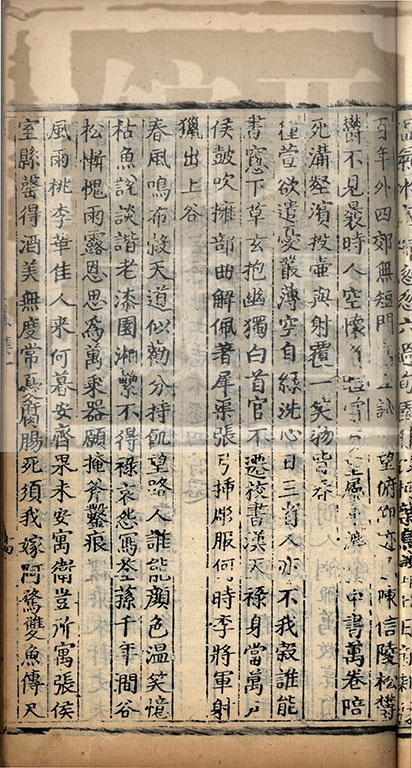 百年外四郊無短 望俯仰迹 陳信陵松
鬱不見曩時人空懷 中書萬卷陪
死溝壑濱投壺與射覆一笑物皆春
種萱欲遣憂叢薄空自綠洗心日三省人亦不我穀誰能
書窓下草玄抱幽獨白首官不遷校書漢天祿身當萬戶
侯鼓吹擁部曲解佩著犀渠張弓揷彫服何時李將軍射
獵出上谷
春風鳴布穀天道似勸分持飢望路人誰能顔色温笑憶
枯魚說談諧老漆園湘纍不得祿哀怨寫荃蓀千年澗谷
松慚愧雨露恩思爲萬乘器願掩斧鑿痕
風雨桃李華佳人來何暮安齊果未安寓衛豈所寓張侯
室縣罄得酒美無度常 腐腸死須我嫁阿鶩雙魚傳尺